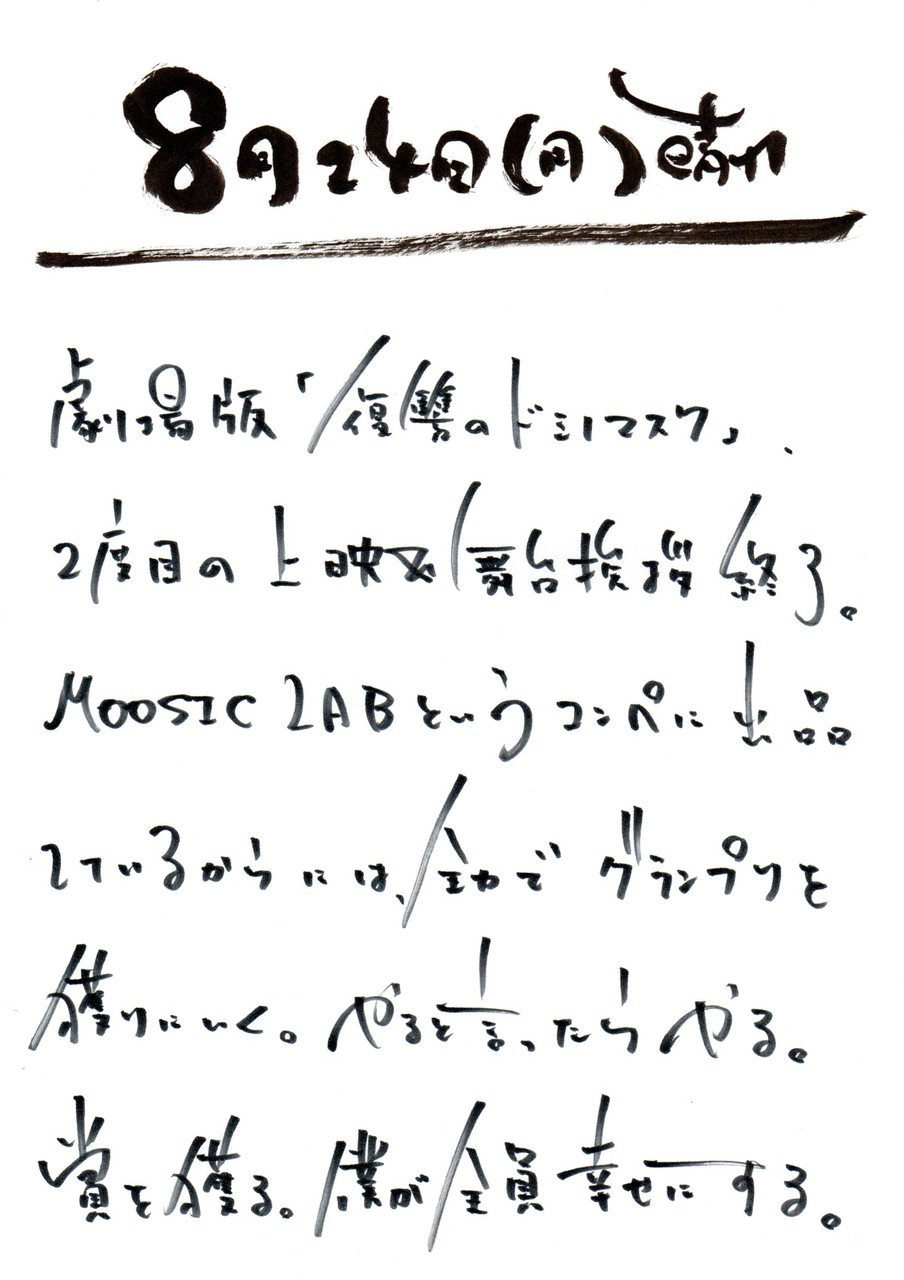 8月24日(月)晴れ
劇場版「復讐のドミノマスク」、
2度目の上映及舞台挨拶終了。
MOOSIC LABというコンペに出品
しているからには、全力でグランプリを
獲りにいく。やると言ったらやる。
賞を獲る。僕が全員幸せにする。